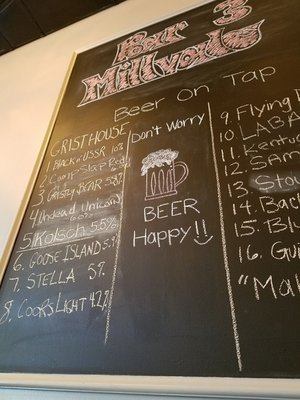 Bar 3
Millvale
Beer On Tap
GRISTHOUSE
1 BACK n' USSR 10%
2 Camp Slap Red
3 GRISTY BEAR 5.8%
4 Undead Unicorn
5 Kolsch 5.5%
6 GOOSE ISLAND 5.9
7 STELLA 5%
8. COORS LIGHT 4.2%
Don't Worry
BEER
Happy!!
9. Flying
10. LABA
11. Kentu
12. Sam
13. Stou
14. Back
15. Blu
16. Gu
"Mal